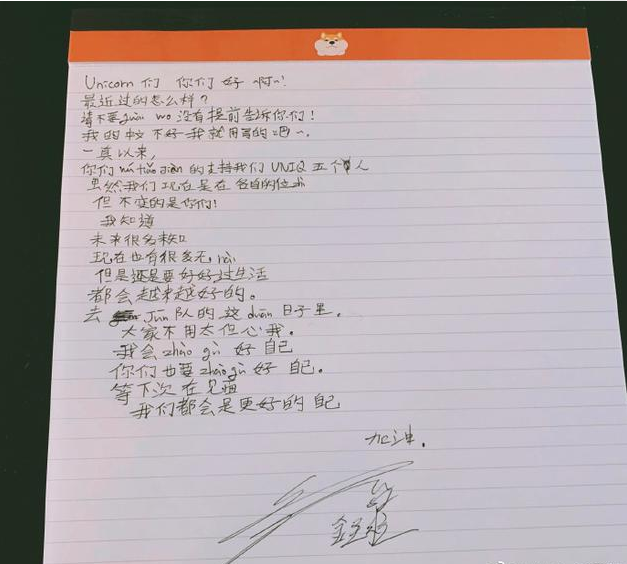 Unicorn们 你们好 啊~!
最近过的怎么样?
请不要guài wo 没有提前告诉你们!
我的中文不好我就用写的吧~.
一真以来,
你们wú tiáo jiàn 的支持我们 UNIQ 五个人
虽然我们现在是在各自的位
但不变的是你们!
我知道
未来很多未知
现在也有很多无nài
但是还是要好好过生活
都会越来越好的。
去 Jūn 队的这 duàn 日子里.
大家不用太但心我.
我会 zhào gù 好 自己
你们也要 zhào gù 好 自己.
等下次在见面
我们都会是更好的 自己
加油.